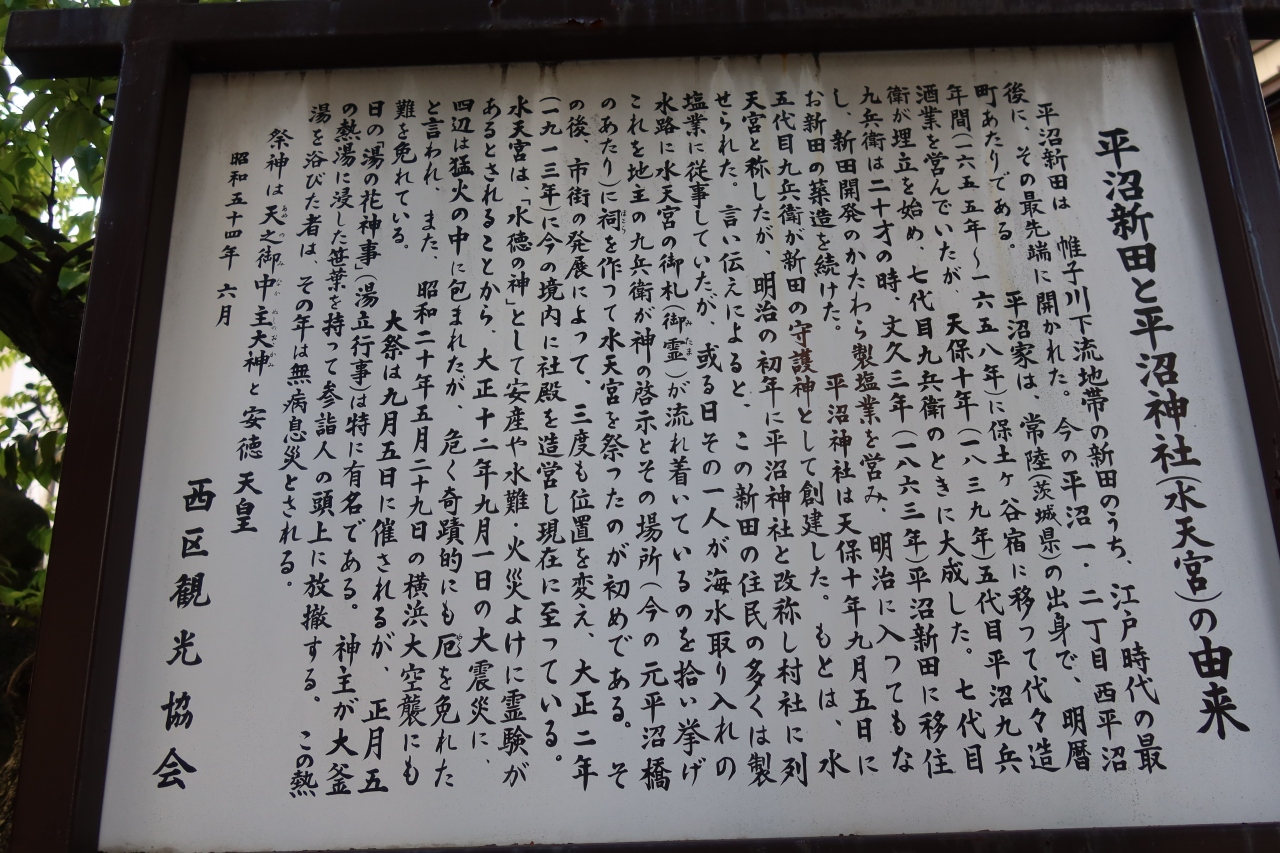 平沼新田と平沼神社(水天宮)の由来
平沼新田は 帷子川下流地帯の新田のうち、江戸時代の最
後に、その最先端に開かれた。今の平沼一・二丁目 西平沼
町あたりである。 平沼家は、常陸(茨城県)の出身で、明暦
年間(一六五五年〜一六五八年)に保土ヶ谷宿に移つて代々造
酒業を営んでいたが、天保十年(一八三九年)五代目平沼九兵
衛が埋立を始め、七代目九兵衛のときに大成した。七代目
九兵衛は二十才の時、文久三年(一八六三年)平沼新田に移住
し、新田開発のかたわら製塩業を営み、明治に入つてもな
お新田の築造を続けた。 平沼神社は天保十年九月五日に
五代目九兵衛が新田の守護神として創建した。もとは、水
天宮と称したが、明治の初年に平沼神社と改称し村社に列
せられた。言い伝えによると、この新田の住民の多くは製
塩業に従事していたが、或る日その一人が海水取り入れの
水路に水天宮の御札(御霊みたま)が流れ着いているのを拾い挙げ
これを地主の九兵衛が神の啓示とその場所(今の元平沼橋
のあたり)に祠ほこらを作って水天宮を祭ったのが初めである。そ
の後、市街の発展によって、三度も位置を変え、大正二年
(一九一三年)に今の境内に社殿を造営し現在に至っている。
水天宮は、「水徳の神」として安産や水難・火災よけに霊験が
あるとされることから、大正十二年九月一日の大震災に、
四辺は猛火の中に包まれたが、危く奇蹟的にも厄やくを免れた
と言われ、また、昭和二十年五月二十九日の横浜大空襲にも
難を免れている。 大祭は九月五日に催されるが、正月五
日の「湯の花神事」(湯立行事)は特に有名である。神主が大釜
の熱湯に浸した笹葉を持って参詣人の頭上に放撤する。この熱
湯を浴びた者は、その年は無病息災とされる。
祭神は天之御中主大神と安徳天皇
昭和五十四年 六月
西区観光協会